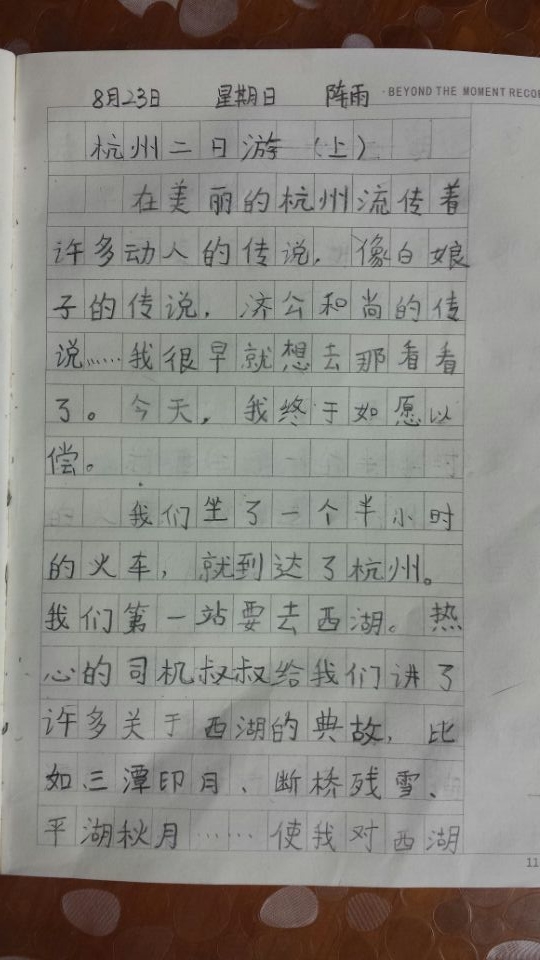 8月23日 星期日 阵雨 · BEYOND THE MOMENT RECO
杭州二日游（上）
在美丽的杭州流传着
许多动人的传说，像白娘
子的传说，济公和尚的传
说……我很早就想去那看看
了。今天，我终于如愿以
偿。
我们坐了一个半小时
的火车，就到达了杭州。
我们第一站要去西湖。热
心的司机叔叔给我们讲了
许多关于西湖的典故，比
如三潭印月、断桥残雪、
平湖秋月……使我对西湖
11